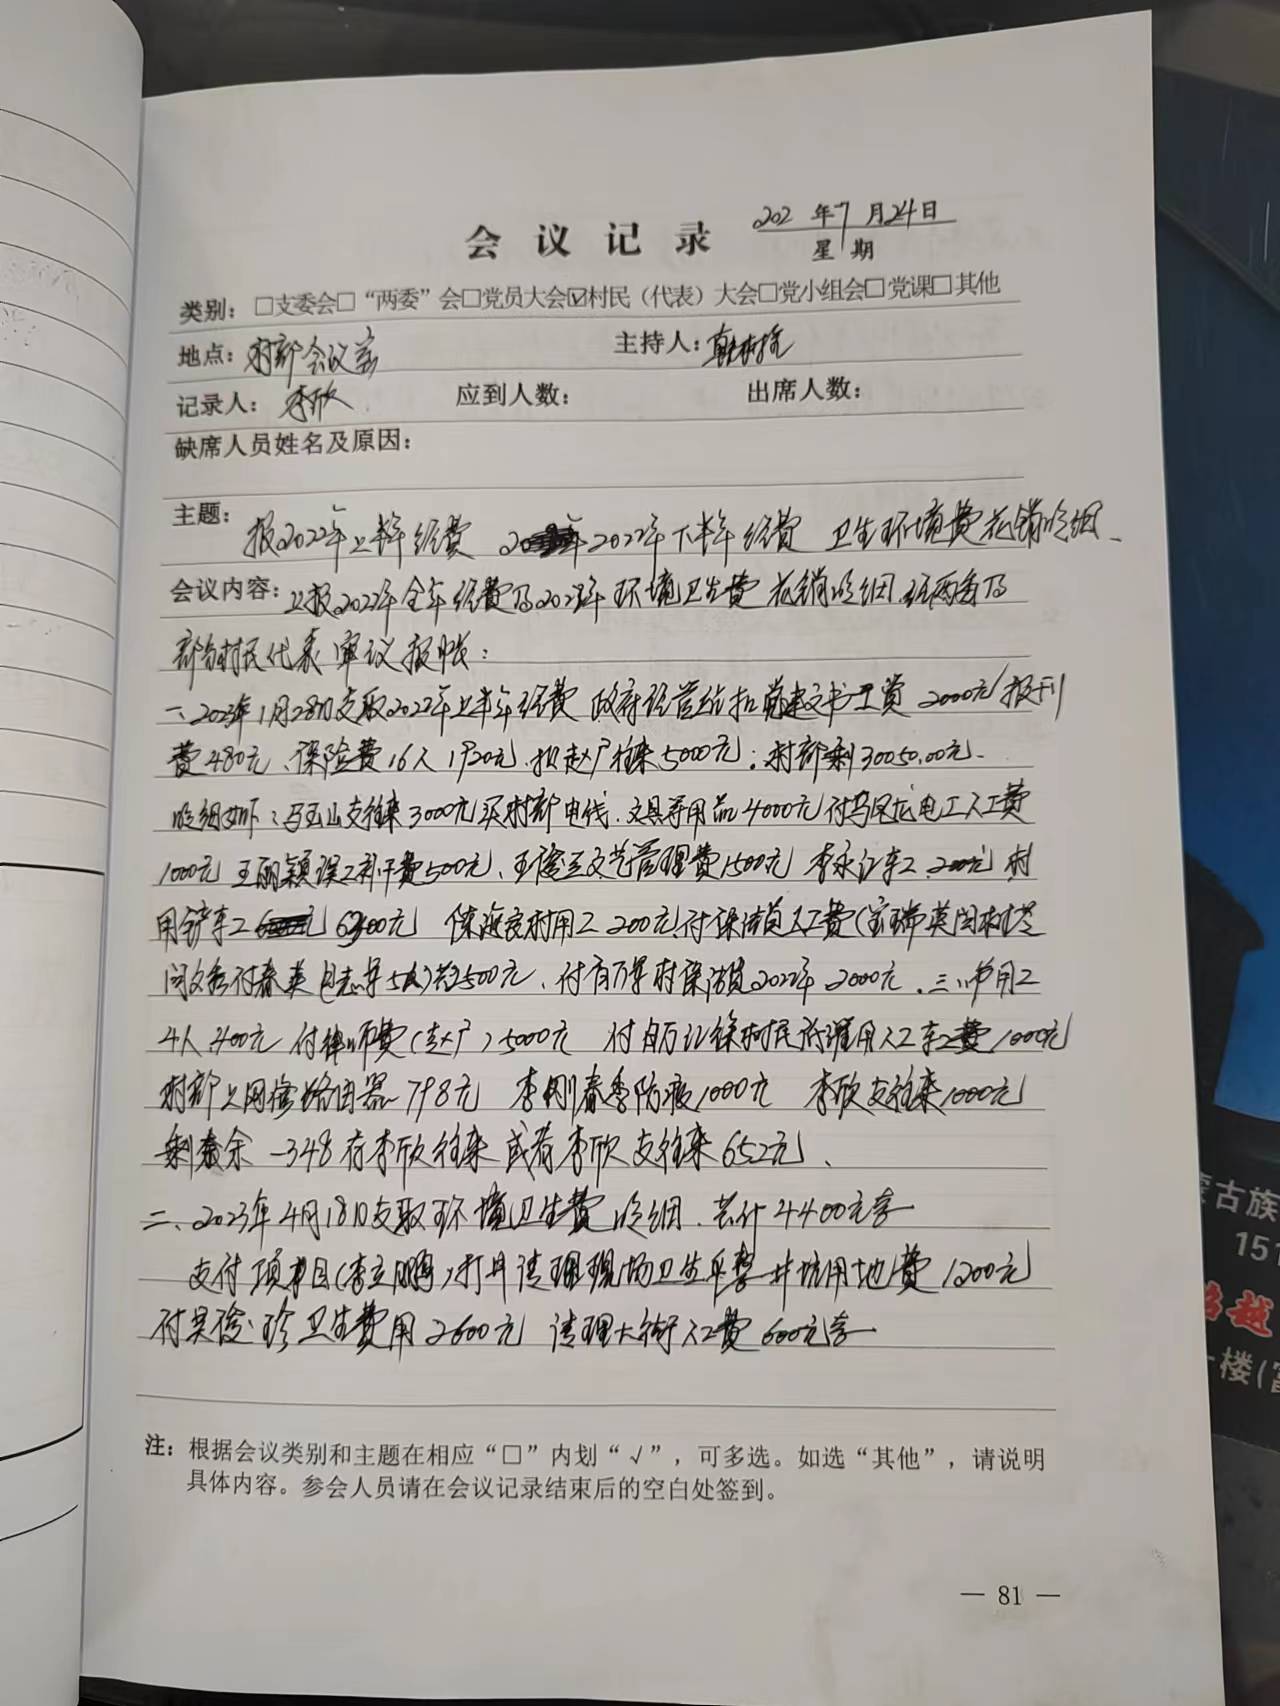 会议记录
202 年7月24日
星期
类别：□支委会□“两委”会□党员大会☑村民（代表）大会□党小组会□党课□其他
地点：村部会议室 主持人：
记录人：李欣 应到人数： 出席人数：
缺席人员姓名及原因：
主题：报2022年上半年经费 2022年下半年经费 卫生环境费花销明细
会议内容：上报2022年全年经费及2023年环境卫生费花销明细.经两委及
部分村民代表审议报账：
一、2023年1月28日支取2022年上半年经费 政府经管站扣党建文书工资 2000元 报刊
费480元、保险费16人1920元.扣赵广往来5000元；村部剩30050.00元.
明细如下：马玉山支往来3000元买村部电线.文具等用品4000元付马凤龙电工人工费
1000元 王丽颖误工补干费500元、王俊兰文艺管理费1500元 李永江车工.200元 村
用铲车工 6300元 陈海良村用工200元.付保洁员人工费(宝瑞英
付春英 等5人)共2500元、付有万军村保洁员2022年2000元.三
4人400元 付律师费(赵广)5000元 付 村民 用人工车工费1000元
村部上网修路由器798元 李刚春季防疫1000元 李欣支往来1000元
剩余 -348存李欣往来 或者李欣支往来652元、
二、2023年4月18日支取环境卫生费明细.共计4400元含
支付项目(李立鹏)打井清理现场卫生平整井坑用地费1200元
付吴俊珍卫生费用2600元 清理大街人工费600元含
注：根据会议类别和主题在相应“□”内划“√”，可多选。如选“其他”，请说明
具体内容。参会人员请在会议记录结束后的空白处签到。
— 81 —
古族
151
越
楼(